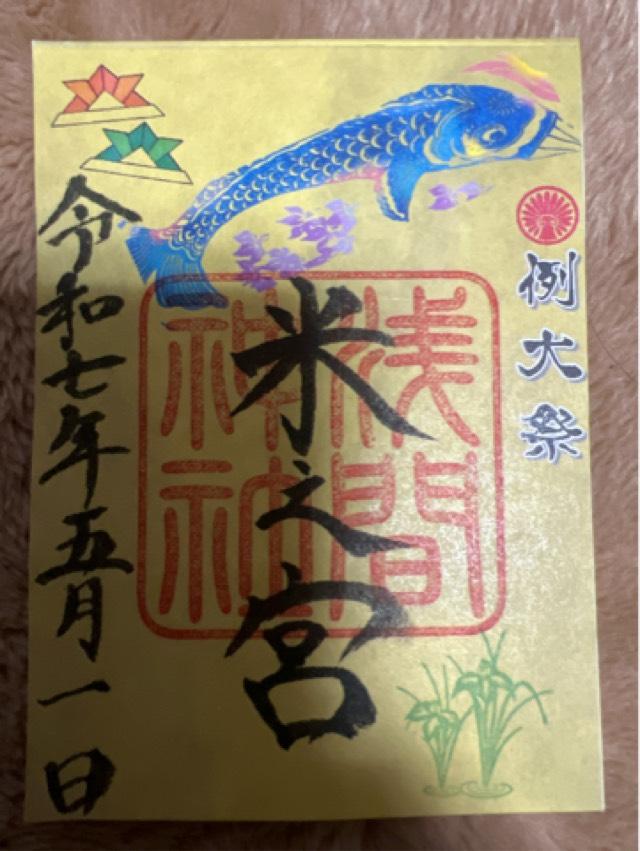 例大祭
浅間神社
米之宮
令和七年五月一日